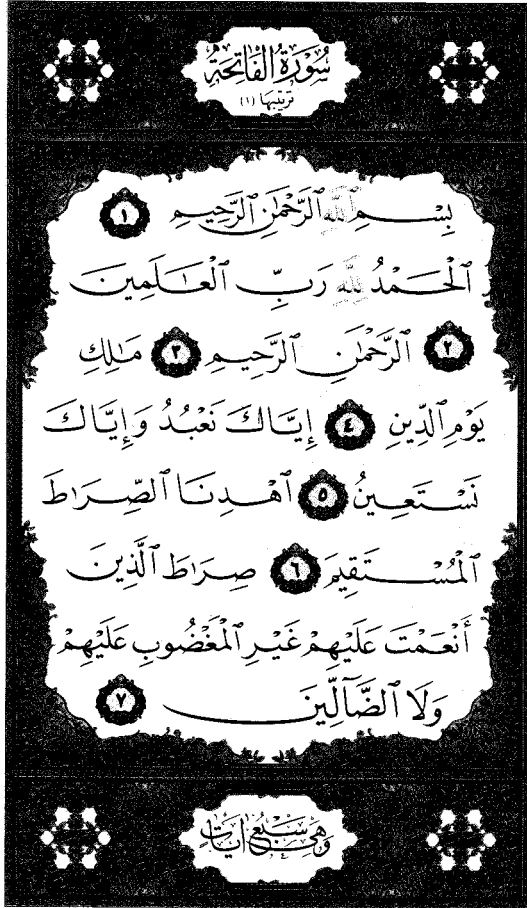 سُورَةُ الفَاتِحَةِ
ترتيبها (١)
بِسْمِ ٱللَّهِ ٱلرَّحْمَٰنِ ٱلرَّحِيمِ ١
ٱلْحَمْدُ لِلَّهِ رَبِّ ٱلْعَٰلَمِينَ
٢ ٱلرَّحْمَٰنِ ٱلرَّحِيمِ ٣ مَٰلِكِ
يَوْمِ ٱلدِّينِ ٤ إِيَّاكَ نَعْبُدُ وَإِيَّاكَ
نَسْتَعِينُ ٥ ٱهْدِنَا ٱلصِّرَٰطَ
ٱلْمُسْتَقِيمَ ٦ صِرَٰطَ ٱلَّذِينَ
أَنْعَمْتَ عَلَيْهِمْ غَيْرِ ٱلْمَغْضُوبِ عَلَيْهِمْ
وَلَا ٱلضَّآلِّينَ ٧
وَهِيَ سَبْعُ آيَاتٍ